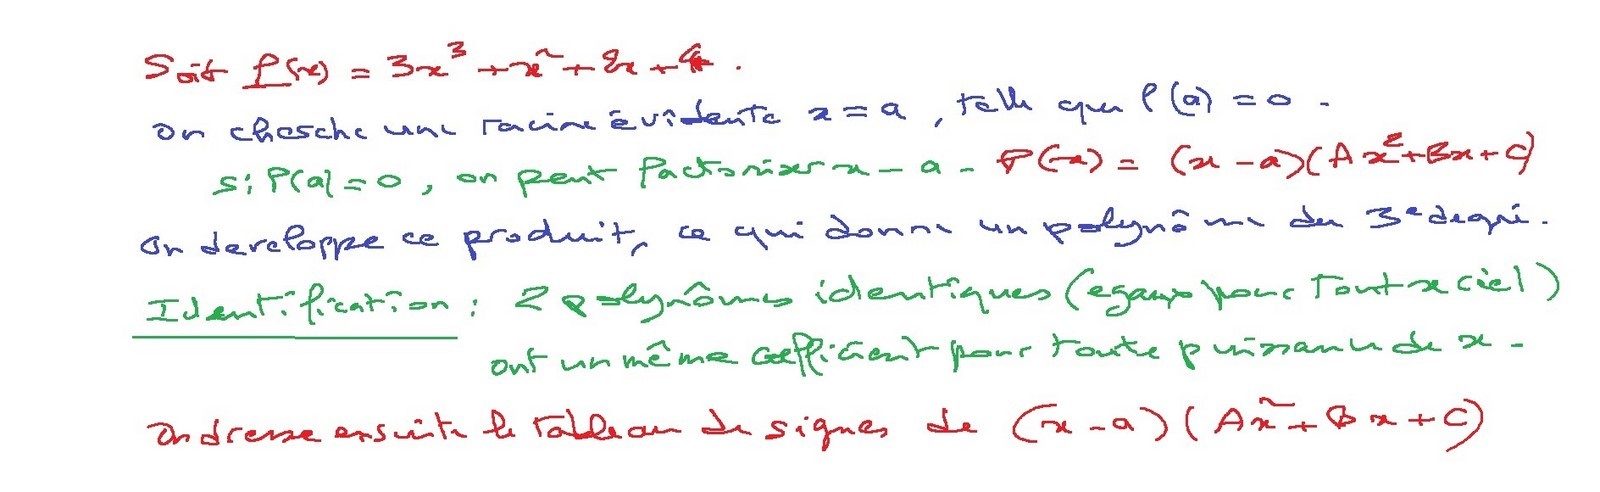 Soit P(x) = 3x³ + x² + 8x + 4.
on cherche une racine évidente x = a, telle que P(a) = 0.
si P(a) = 0, on peut factoriser x - a. P(x) = (x - a)(Ax² + Bx + C)
On developpe ce produit, ce qui donne un polynôme du 3e degré.
Identification : 2 polynômes identiques (egaux pour tout x
ont un même coefficient pour toute puissance de x.
On dresse ensuite le tableau de signes de (x - a)(Ax² + Bx + C)